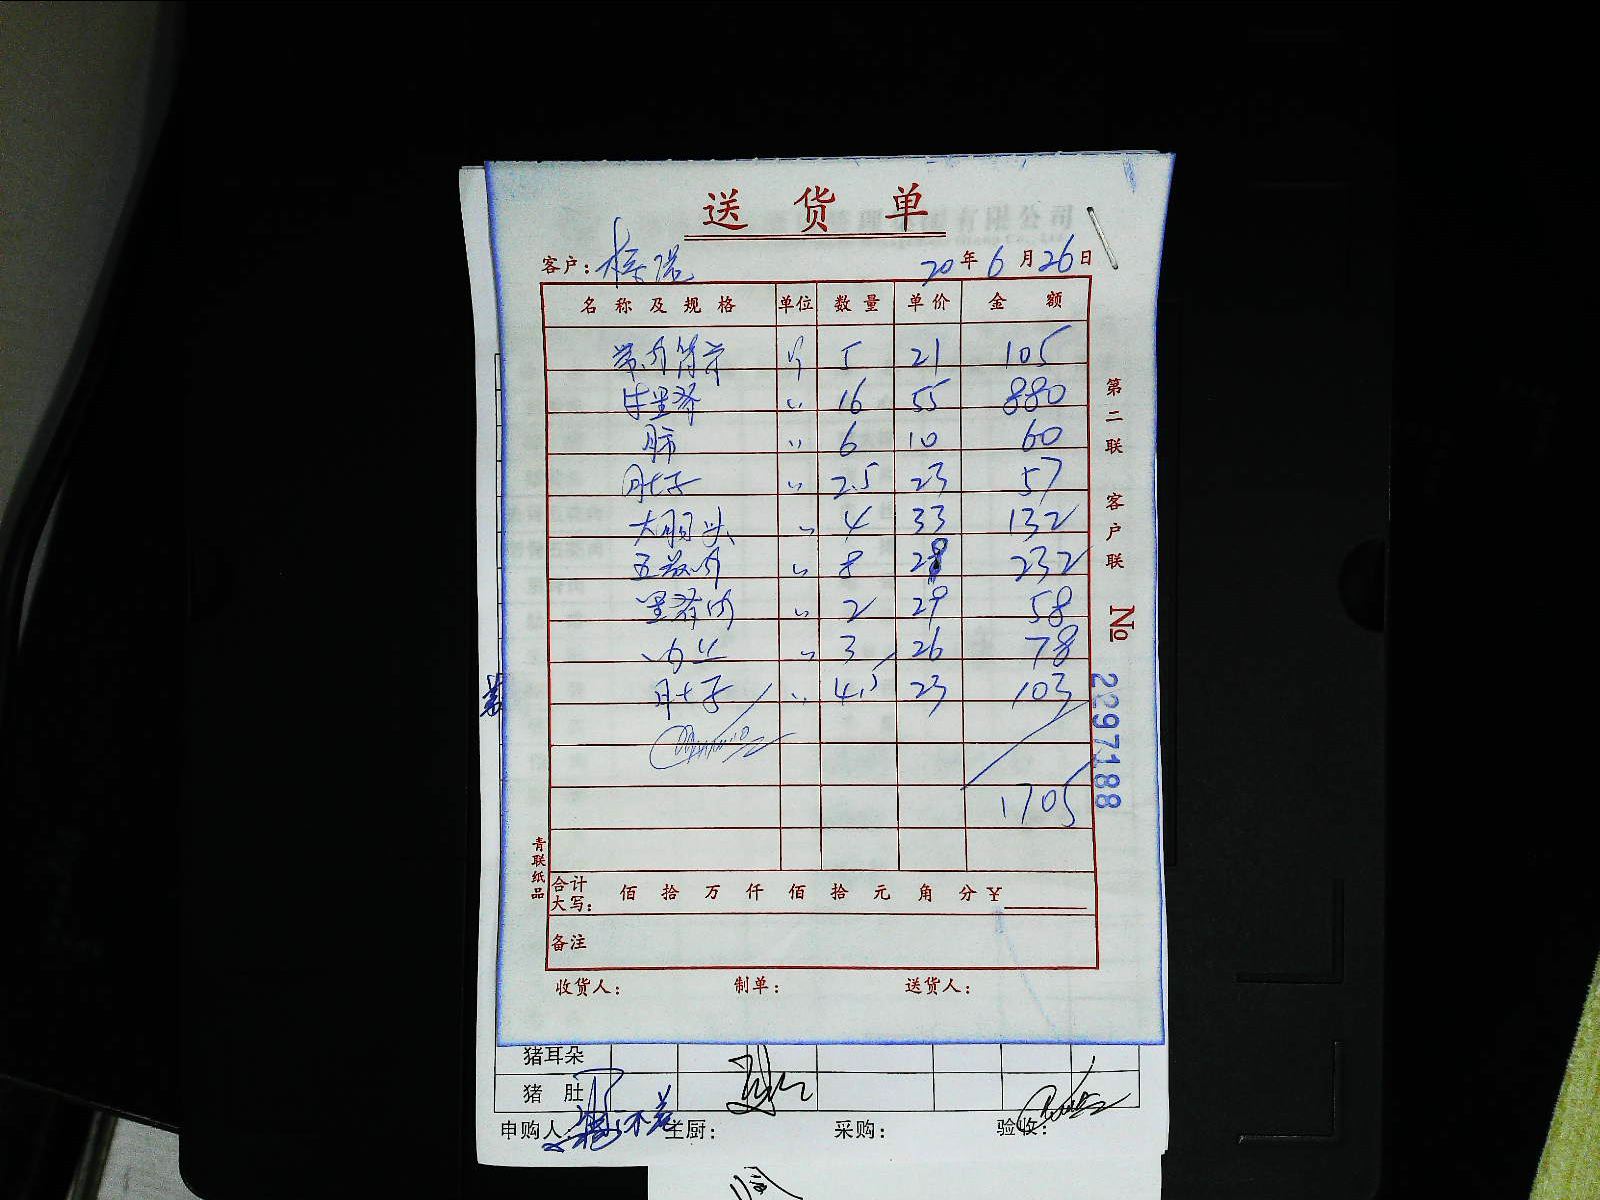 送货单
客户： 20年6月26日
名称及规格 单位 数量 单价 金额
带肉筒骨 斤 5 21 105
牛里脊 〃 16 55 880
肺 〃 6 10 60
肚子 〃 2.5 23 57
大肠头 〃 4 33 132
五花肉 〃 8 232
里脊肉 〃 2 29 58
〃 3 26 78
肚子 〃 4.5 23 103
1705
合计大写： 佰拾万仟佰拾元角分￥
备注
收货人： 制单： 送货人：
第二联 客户联 No 2297188
青联纸品
猪耳朵
猪肚
申购人： 主厨： 采购： 验收：